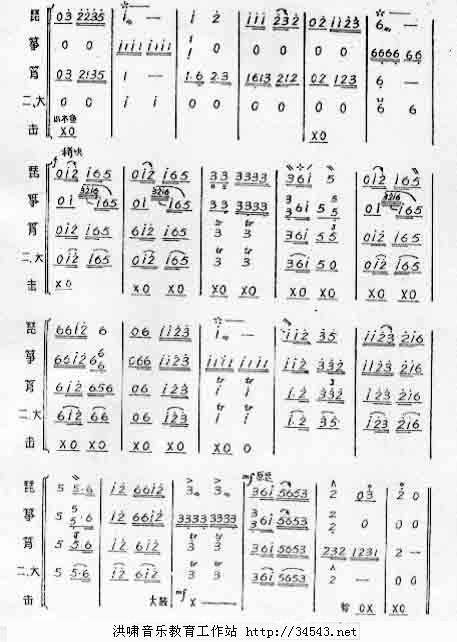 琵 03 2235 | i — | i 2 | iii 232 | 02 ii23 | 6 —
筝 0 0 | iiii iiii | i 0 | 0 0 | 0 0 | 6666 66
03 2135 | 1 — | 1·6 2 3 | 1613 212 | 02 123 | 6 —
二、大 0 0 | i i | 0 0 | 0 0 | 0 0 | 6 6
击 X0 | X0
f 稍快
琵 0i2 i65 | 0i2 i65 | 33 3333 | 36i 5 | 0i2 i65
筝 01 3216 i65 | 01 3216 i65 | 33 3333 | 36i 5 5 | 01 3216 i65
0i2 i65 | 6i2 i65 | 3 3 | 36i 5 5 | 0i2 i65
二、大 0i2 i65 | 0i2 i65 | 3 3 | 36i 50 | 0i2 i65
击 X0 | X0 X0 | X0 X0 | X0 X0 | X0 X0
琵 66i2 6 | 06 ii23 | i — | ii2 35 | ii23 2i6
筝 66i2 6 6 | 066 ii23 | iiii iiii | ii2 332 | ii23 2i6
6i2 656 | 06 i23 | i i | 1·2 332 | i23 2i6
二、大 6i2 66 | 06 i23 | i i | i·2 35 | i23 2i6
击 X0 X0 | X0 X0 | X0 0
mf 原速
琵 5 5·6 | i2 66i2 | 3 3 | 36i 5653 | 2 03 | 2 0
筝 5 5·6 | i2 66i2 | 3333 3333 | 36i 5653 | 2 0 | 0 0
5 5·6 | i2 6i2 | 3 3 | 36i 5653 | 232 1231 | 2 —
二、大 5 5·6 | i2 6i2 | 3 3 | 36i 5653 | 2 — | 0 0
击 大鼓 mf X — | 0X | X0
洪啸音乐教育工作站 http://34543.net